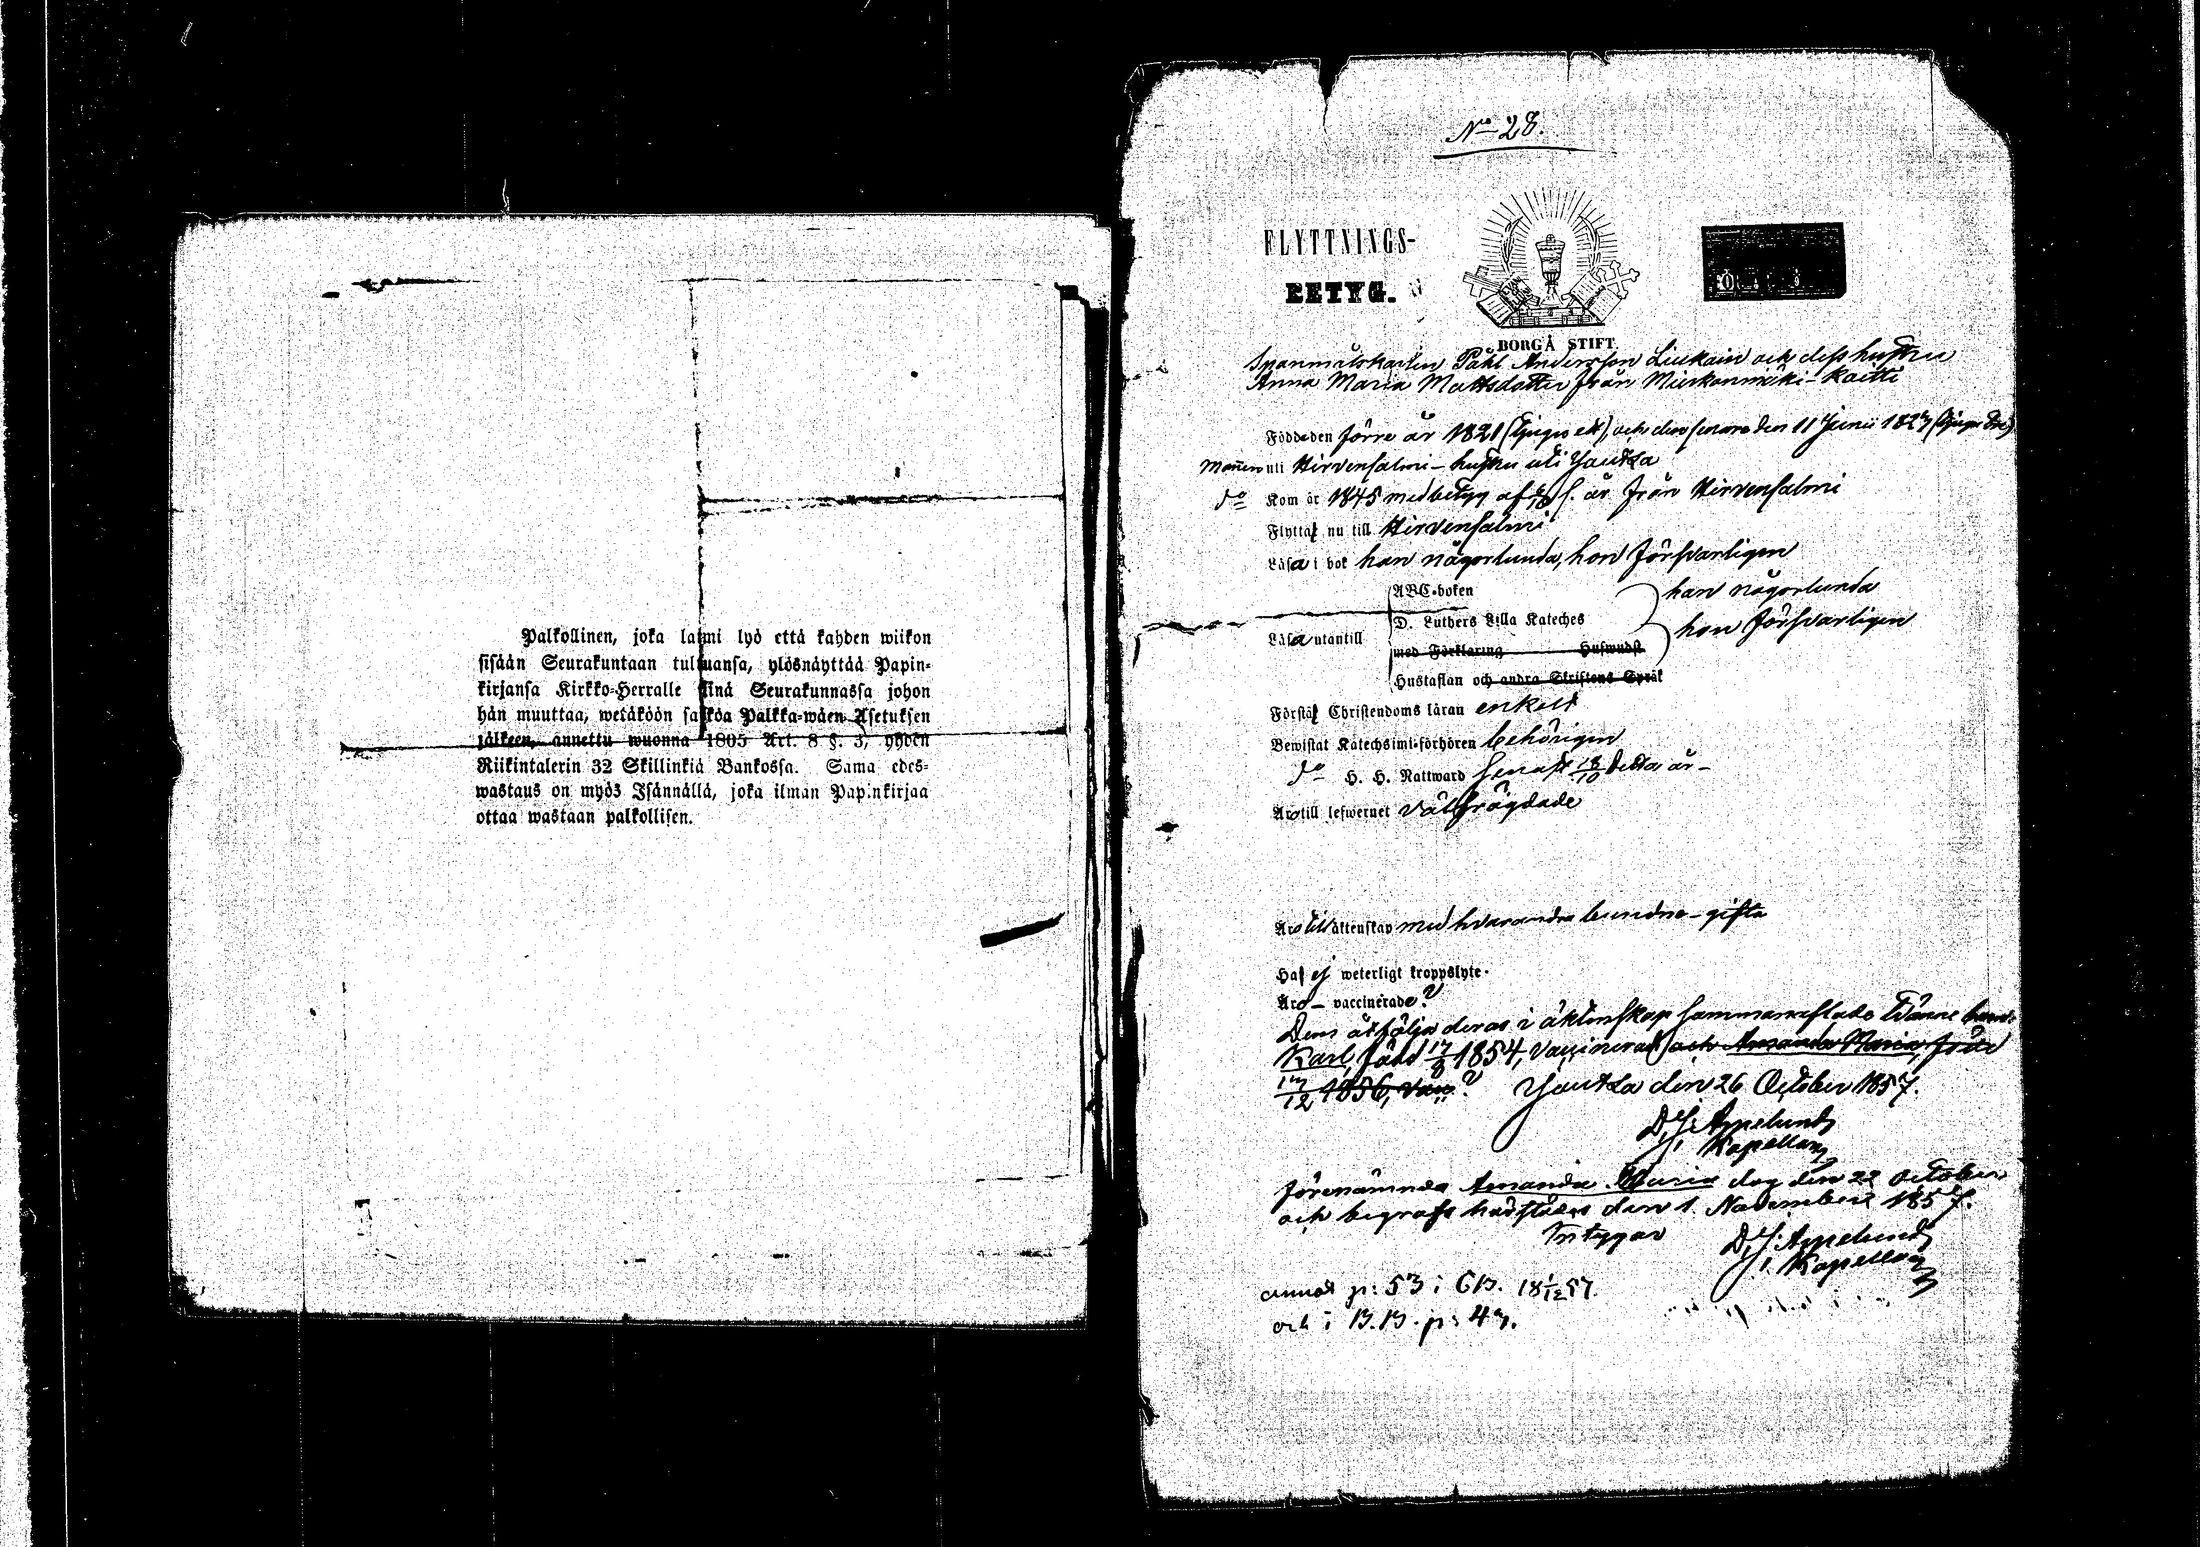 Palkollinen, joka laimi lyö että kahden wiikon
sisään Seurakuntaan tultuansa, ylösnäyttää Papin-
kirjansa Kirkko-Herralle siinä Seurakunnassa johon
hän muuttaa, wetäköön sakkoa Palkka-wäen Asetuksen
jälkeen, annettu wuonna 1805 Art. 8 §. 3, yhden
Riikintalerin 32 Skillinkiä Bankossa. Sama edes-
wastaus on myös Isännällä, joka ilman Papinkirjaa
ottaa wastaan palkollisen.
No 28.
FLYTTNINGS-
BETYG.
BORGÅ STIFT
Spanmålskarlen Påhl Andersson Liukain och dess hustru
Anna Maria Mattsdotter från Mieskonmäki-Kaitti
Född den förre år 1821 (tjugu ett), och den senare den 11 Junii 1823 (tjugu tre)
Mannen uti Hirvensalmi - hustru uti Jautsa
do Kom år 1845 med betyg af s. år från Hirvensalmi
Flytta nu till Hirvensalmi
Läsa i bok han någorlunda, hon försvarligen
ABC-boken
D. Luthers Lilla Kateches
med Förklaring Huswudst.
Hustaflan och andra Skriftens Språk
Läsa utantill
han någorlunda
hon försvarligen
Förstå Christendoms läran enkelt
Bewistat Katechismi-förhören behörigen
do H. H. Nattward senast 18/10 detta år -
Äro till lefwernet välfrägdade
Äro till äktenskap med hvarandra bundne - gifta
Haf ej weterligt kroppslyte.
Äro - vaccinerade?
Dem åtfölja deras i äktenskap sammanaflade tvänne barn:
Karl, född 17/8 1854, vaccinerad och Amanda Maria, född
13/12 1856, vac:? Jautsa den 26 October 1857.
D. J. Appelund
Kapellan
förenämnda Amanda Maria dog den 22 October
och begrafs härstädes den 1. November 1857.
Intygar D. J. Appelund
Kapellan
annot p: 53 i CB. 18 1/12 57.
och i B.B. p: 43.